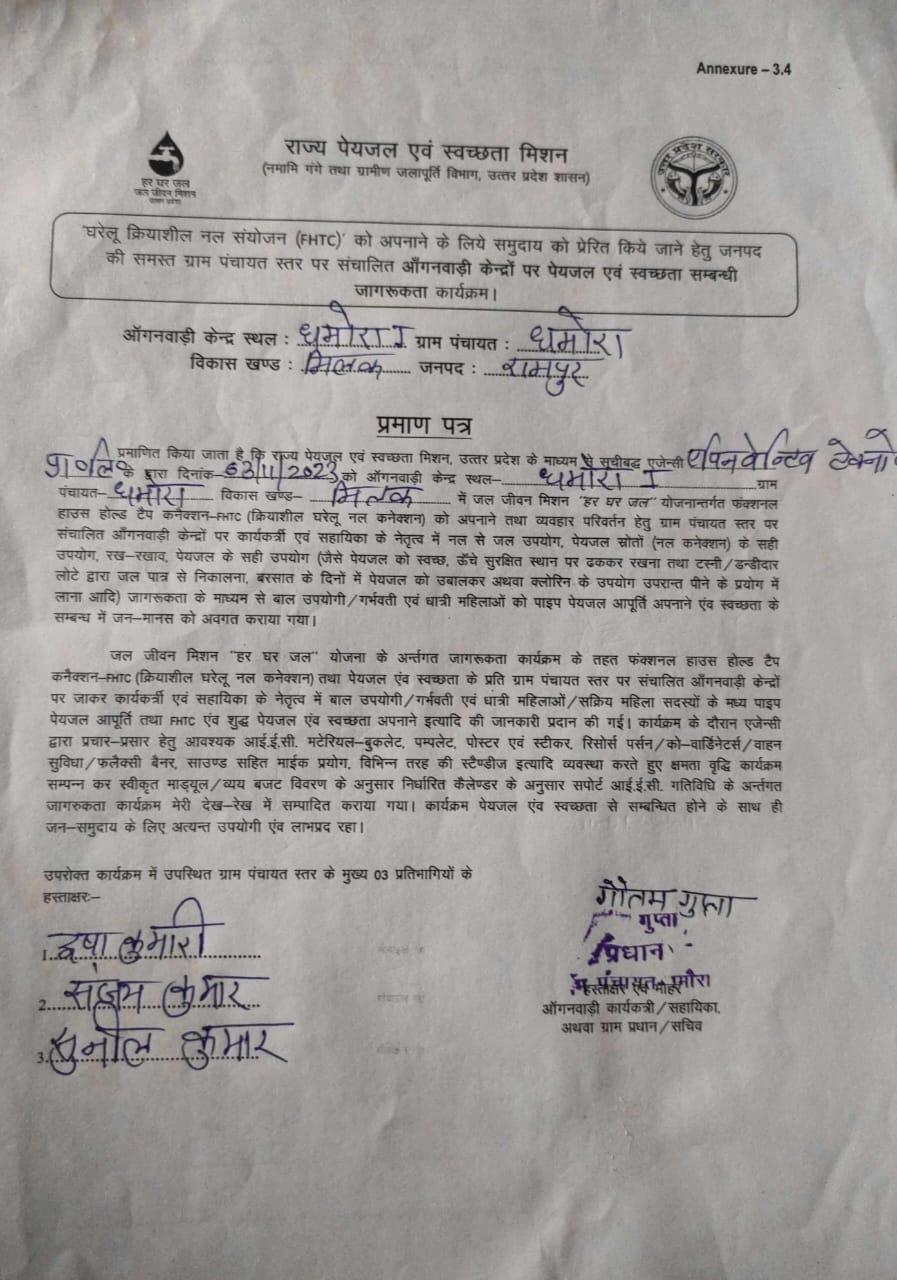 Annexure – 3.4
हर घर जल
जल जीवन मिशन
राज्य पेयजल एवं स्वच्छता मिशन
(नमामि गंगे तथा ग्रामीण जलापूर्ति विभाग, उत्तर प्रदेश शासन)
उत्तर प्रदेश सरकार
'घरेलू क्रियाशील नल संयोजन (FHTC)' को अपनाने के लिये समुदाय को प्रेरित किये जाने हेतु जनपद
की समस्त ग्राम पंचायत स्तर पर संचालित आँगनवाड़ी केन्द्रों पर पेयजल एवं स्वच्छता सम्बन्धी
जागरूकता कार्यक्रम।
ऑगनवाड़ी केन्द्र स्थल : धमोरा I ग्राम पंचायत : धमोरा
विकास खण्ड : मिलक जनपद : रामपुर
प्रमाण पत्र
प्रमाणित किया जाता है कि राज्य पेयजल एवं स्वच्छता मिशन, उत्तर प्रदेश के माध्यम से सूचीबद्ध एजेन्सी एपिनवेन्टिव टेक्नो
प्रा० लि० के द्वारा दिनांक-03/11/2023 को ऑगनवाड़ी केन्द्र स्थल- धमोरा I ग्राम
पंचायत- धमोरा विकास खण्ड- मिलक में जल जीवन मिशन "हर घर जल" योजनान्तर्गत फंक्शनल
हाउस होल्ड टैप कनैक्शन–FHTC (क्रियाशील घरेलू नल कनेक्शन) को अपनाने तथा व्यवहार परिवर्तन हेतु ग्राम पंचायत स्तर पर
संचालित ऑगनवाड़ी केन्द्रों पर कार्यकर्त्री एवं सहायिका के नेतृत्व में नल से जल उपयोग, पेयजल स्रोतों (नल कनेक्शन) के सही
उपयोग, रख–रखाव, पेयजल के सही उपयोग (जैसे पेयजल को स्वच्छ, ऊँचे सुरक्षित स्थान पर ढककर रखना तथा टस्नी/डन्डीदार
लोटे द्वारा जल पात्र से निकालना, बरसात के दिनों में पेयजल को उबालकर अथवा क्लोरिन के उपयोग उपरान्त पीने के प्रयोग में
लाना आदि) जागरूकता के माध्यम से बाल उपयोगी/गर्भवती एवं धात्री महिलाओं को पाइप पेयजल आपूर्ति अपनाने एंव स्वच्छता के
सम्बन्ध में जन–मानस को अवगत कराया गया।
जल जीवन मिशन "हर घर जल" योजना के अर्न्तगत जागरूकता कार्यक्रम के तहत फंक्शनल हाउस होल्ड टैप
कनैक्शन–FHTC (क्रियाशील घरेलू नल कनेक्शन) तथा पेयजल एंव स्वच्छता के प्रति ग्राम पंचायत स्तर पर संचालित ऑगनवाड़ी केन्द्रों
पर जाकर कार्यकर्त्री एवं सहायिका के नेतृत्व में बाल उपयोगी/गर्भवती एवं धात्री महिलाओं/सक्रिय महिला सदस्यों के मध्य पाइप
पेयजल आपूर्ति तथा FHTC एंव शुद्ध पेयजल एंव स्वच्छता अपनाने इत्यादि की जानकारी प्रदान की गई। कार्यक्रम के दौरान एजेन्सी
द्वारा प्रचार–प्रसार हेतु आवश्यक आई.ई.सी. मटेरियल–बुकलेट, पम्पलेट, पोस्टर एवं स्टीकर, रिसोर्स पर्सन/को–वार्डिनेटर्स/वाहन
सुविधा/फलैक्सी बैनर, साउण्ड सहित माईक प्रयोग, विभिन्न तरह की स्टैण्डीज इत्यादि व्यवस्था करते हुए क्षमता वृद्धि कार्यक्रम
सम्पन्न कर स्वीकृत माड्यूल/व्यय बजट विवरण के अनुसार निर्धारित कैलेण्डर के अनुसार सपोर्ट आई.ई.सी. गतिविधि के अर्न्तगत
जागरुकता कार्यक्रम मेरी देख–रेख में सम्पादित कराया गया। कार्यक्रम पेयजल एंव स्वच्छता से सम्बन्धित होने के साथ ही
जन–समुदाय के लिए अत्यन्त उपयोगी एंव लाभप्रद रहा।
उपरोक्त कार्यक्रम में उपस्थित ग्राम पंचायत स्तर के मुख्य 03 प्रतिभागियों के
हस्ताक्षरः–
1. कुमारी
2. संजम कुमार
3. सुनील कुमार
गौतम गुप्ता
गुप्ता
प्रधान
पंचायत-
हस्ताक्षर एवं मोहर
ऑगनवाड़ी कार्यकत्री/सहायिका,
अथवा ग्राम प्रधान/सचिव